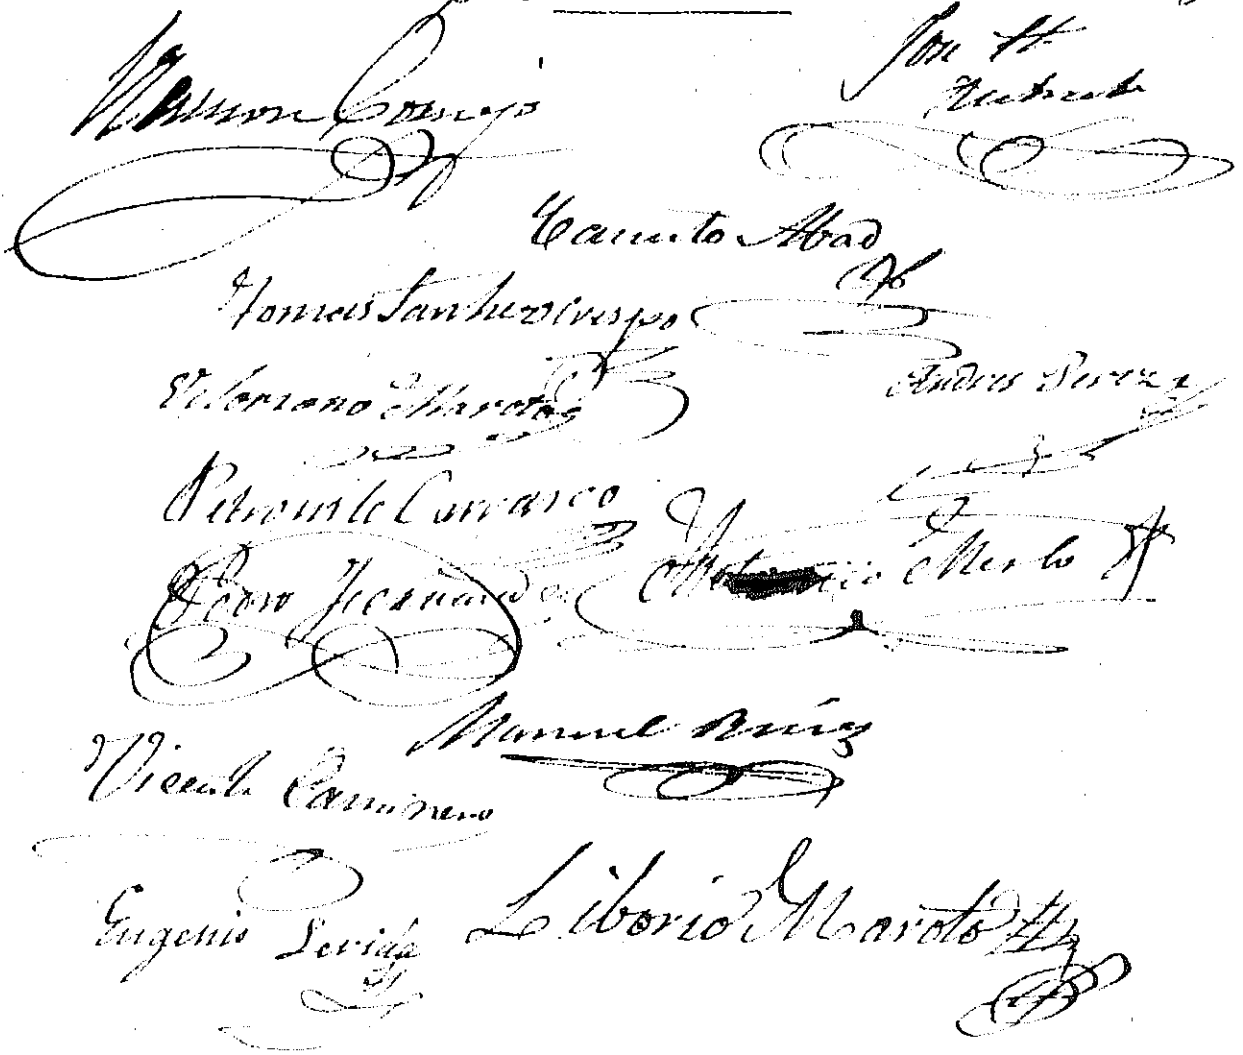 Ramon Cornejo
José H.
Canuto Abad
Tomas Sanchez Crespo
Victoriano Maroto
Andres Perez
Petronilo Carrasco
Pedro Fernandez
Merlo
Manuel Ruiz
Vicente Caminero
Eugenio Lerida
Liborio Maroto